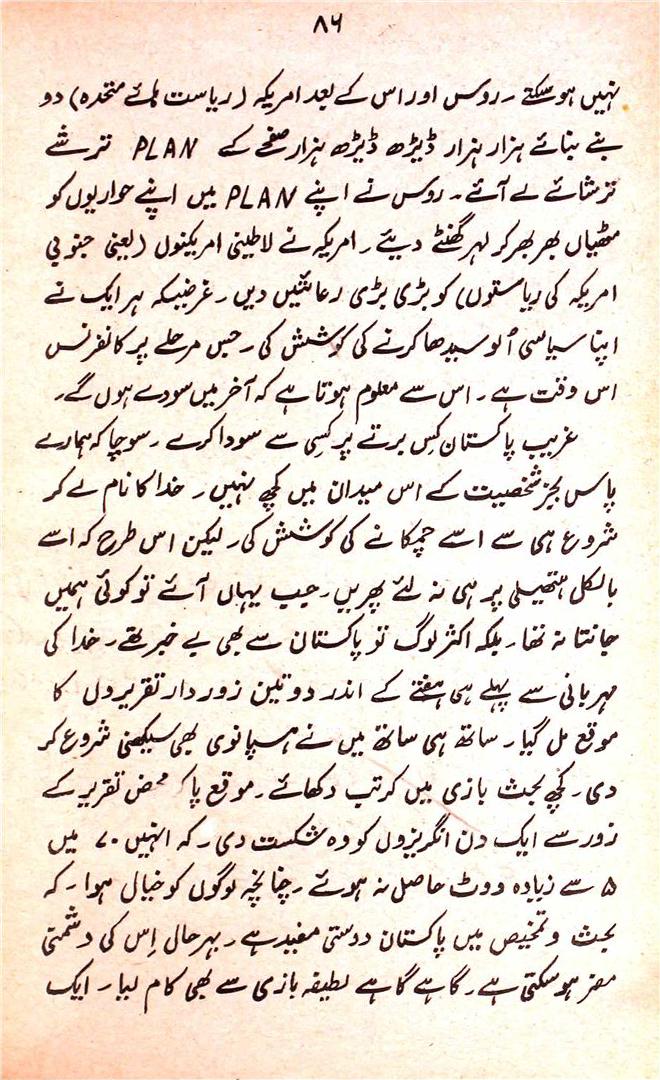 ۸۶
نہیں ہو سکتے ۔ روس اور اس کے بعد امریکہ (ریاست ہائے متحدہ) دو
بنے بنائے ہزار ہزار ڈیڑھ ڈیڑھ ہزار صفحے کے PLAN ترشے
ترشائے لے آئے ۔ روس نے اپنے PLAN میں اپنے حواریوں کو
مٹھیاں بھر بھر کر لہر گھنٹے دیئے ۔ امریکہ نے لاطینی امریکنوں (یعنی جنوبی
امریکہ کی ریاستوں) کو بڑی بڑی رعائتیں دیں ۔ غرضیکہ ہر ایک نے
اپنا سیاسی اُلو سیدھا کرنے کی کوشش کی ۔ جس مرحلے پر کانفرنس
اس وقت ہے ۔ اس سے معلوم ہوتا ہے کہ آخر میں سودے ہوں گے ۔
غریب پاکستان کس برتے پر کسی سے سودا کرے ۔ سوچا کہ ہمارے
پاس بجز شخصیت کے اس میدان میں کچھ نہیں ۔ خدا کا نام لے کر
شروع ہی سے اسے چمکانے کی کوشش کی ۔ لیکن اس طرح کہ اسے
بالکل ہتھیلی پر ہی نہ لئے پھریں ۔ جب یہاں آئے تو کوئی ہمیں
جانتا نہ تھا ۔ بلکہ اکثر لوگ تو پاکستان سے بھی بے خبر تھے ۔ خدا کی
مہربانی سے پہلے ہی ہفتے کے اندر دو تین زور دار تقریروں کا
موقع مل گیا ۔ ساتھ ہی ساتھ میں نے ہسپانوی بھی سیکھنی شروع کر
دی ۔ کچھ بحث بازی میں کرتب دکھائے ۔ موقع پا کر محض تقریر کے
زور سے ایک دن انگریزوں کو وہ شکست دی ۔ کہ انہیں ۷۰ میں
۵ سے زیادہ ووٹ حاصل نہ ہوئے ۔ چنانچہ لوگوں کو خیال ہوا ۔ کہ
بحث و تمحیص میں پاکستان دوستی مفید ہے ۔ بہرحال اِس کی دشمنی
مضر ہو سکتی ہے ۔ گاہے گاہے لطیفہ بازی سے بھی کام لیا ۔ ایک